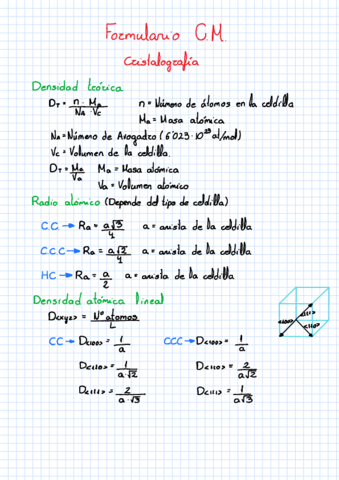 Formulario C.M.
Cristalografía
Densidad teórica
D_T = n · Ma / (N_A · Vc)   n = Número de átomos en la celdilla
Ma = Masa atómica
N_A = Número de Avogadro (6'023 · 10^23 at/mol)
Vc = Volumen de la celdilla.
D_T = Ma / Va   Ma = Masa atómica
Va = Volumen atómico
Radio atómico (Depende del tipo de celdilla)
C.C. → Ra = a√3 / 4   a = arista de la celdilla
C.C.C → Ra = a√2 / 4   a = arista de la celdilla
HC → Ra = a / 2   a = arista de la celdilla
Densidad atómica lineal
D<xyz> = Nº atomos / L
CC → D<100> = 1 / a   CCC → D<100> = 1 / a
D<110> = 1 / a√2   D<110> = 2 / a√2
D<111> = 2 / a·√3   D<111> = 1 / a√3
<111>
<100>
<110>